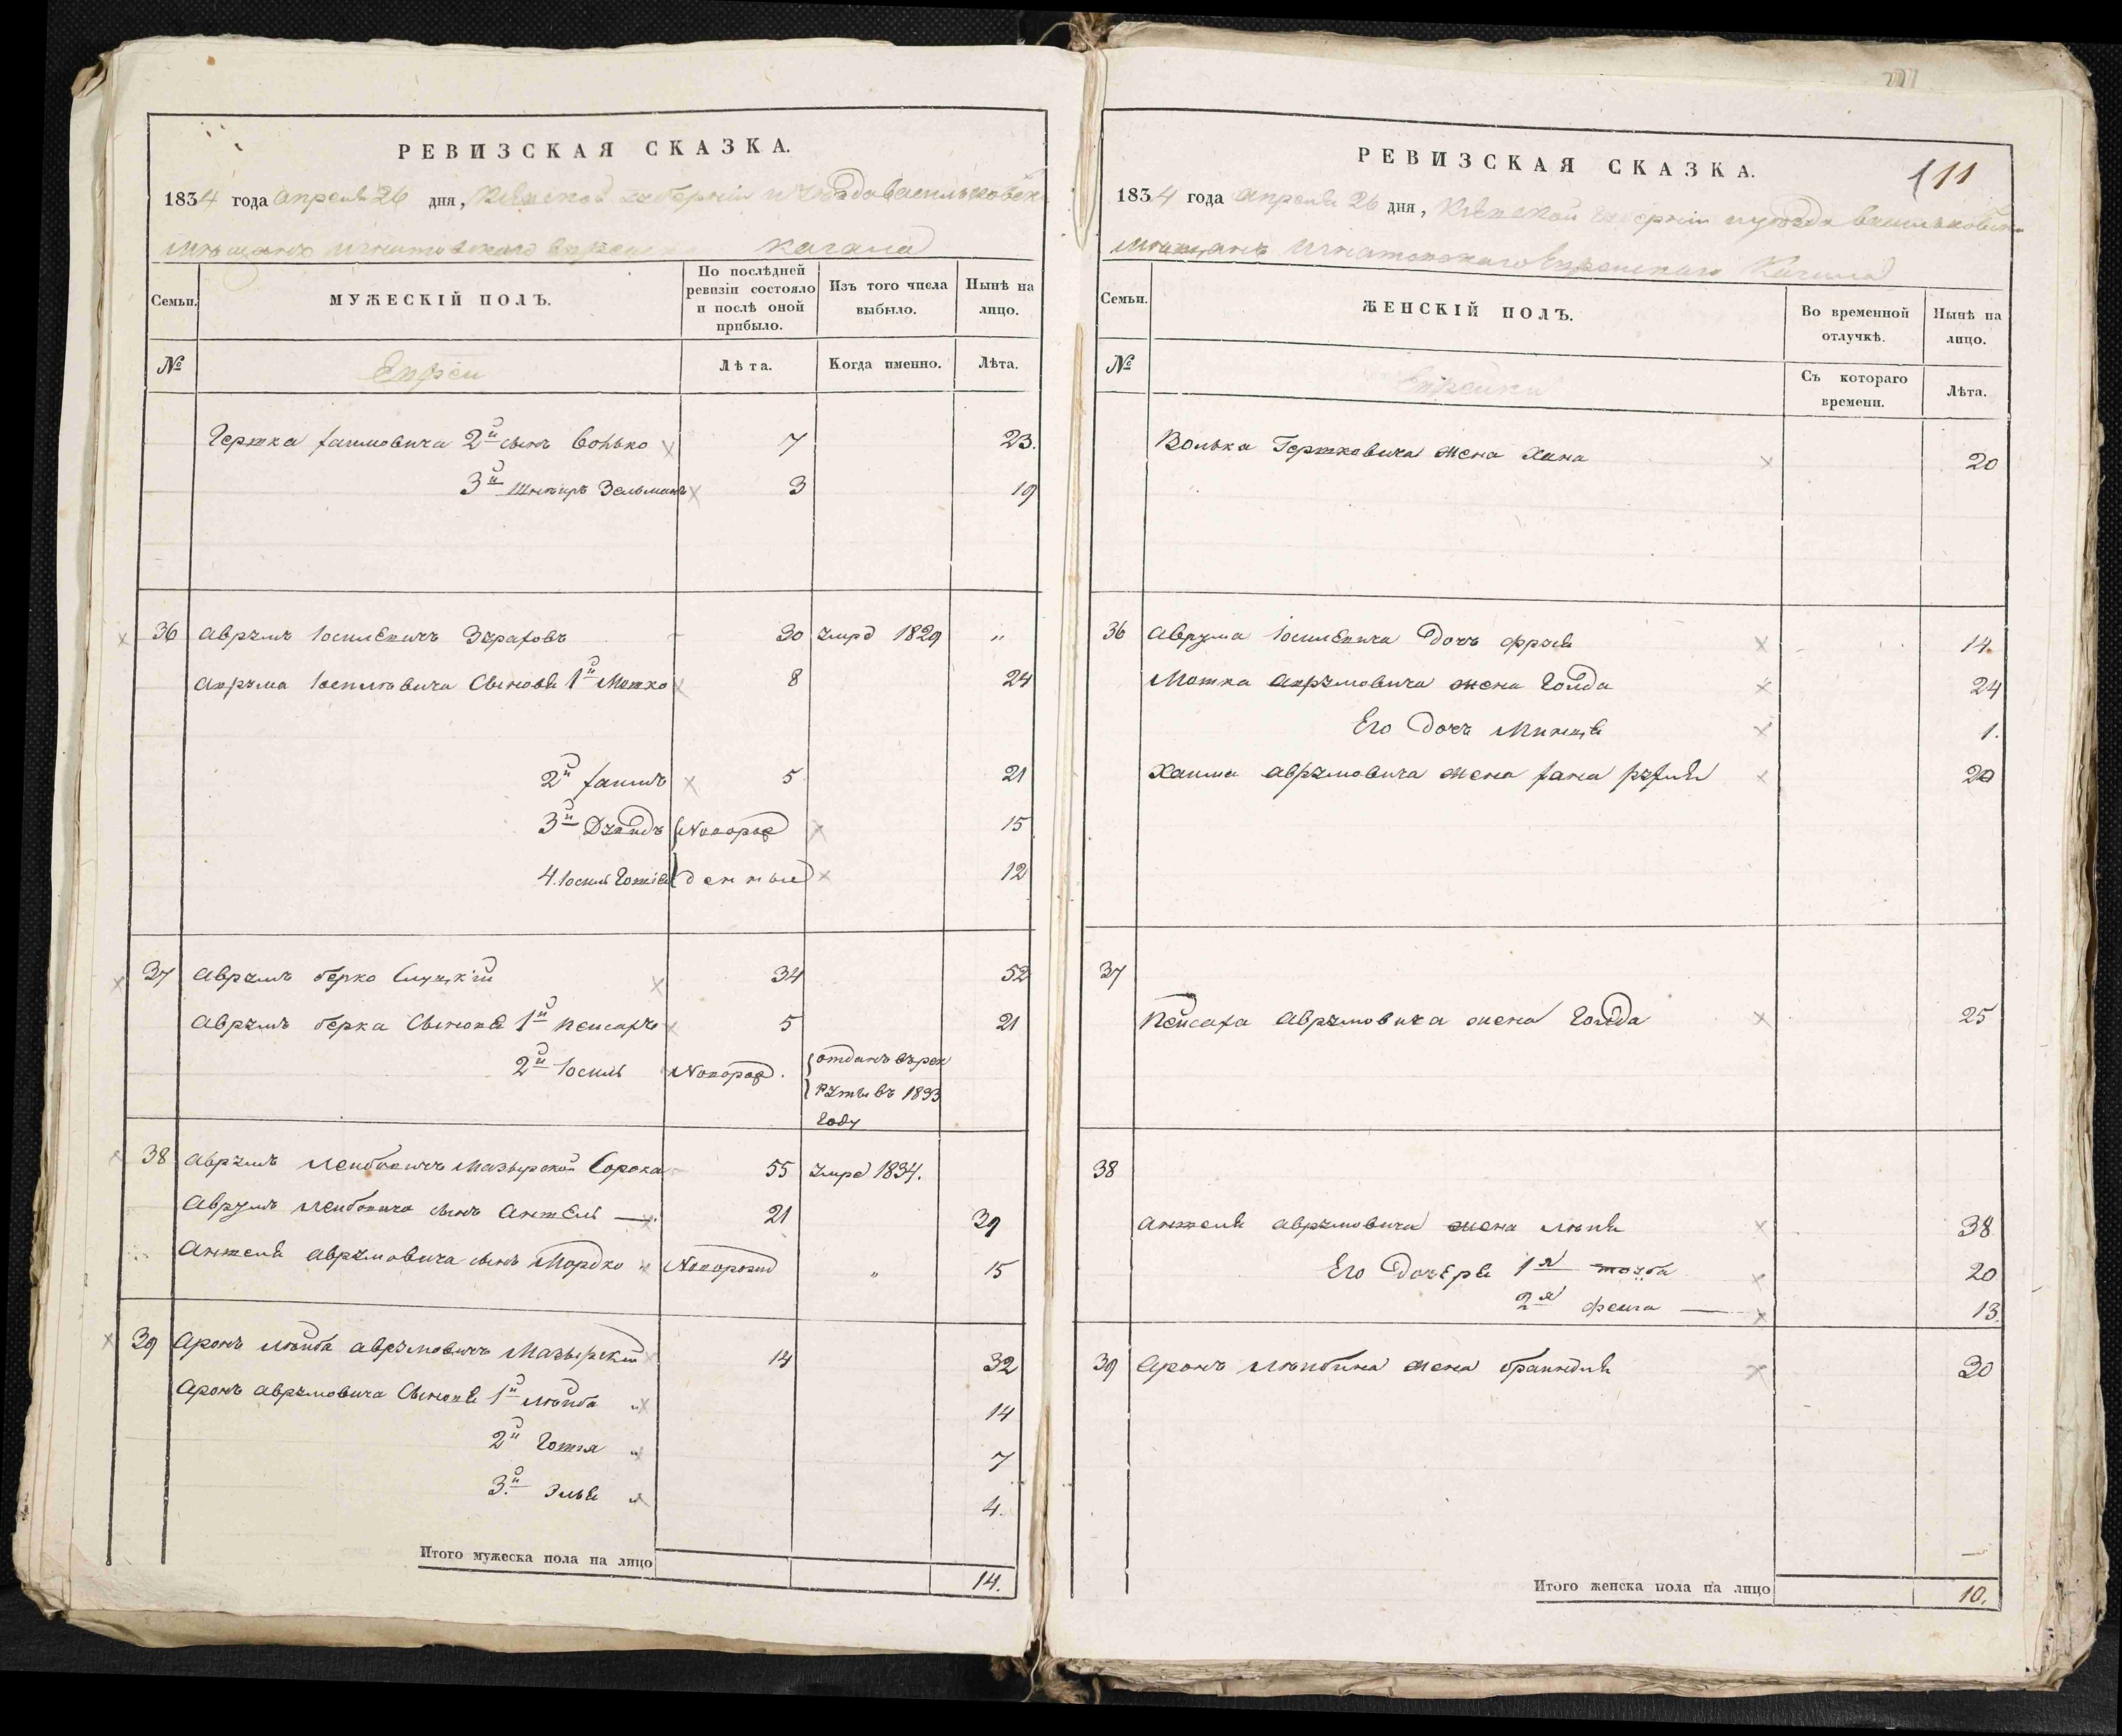 РЕВИЗСКАЯ СКАЗКА.
1834 года апреля 26 дня, Кіевской губерніи и уѣзда Васильковск
мѣщанъ Игнатовскаго Еврей кагала
Семьи.
МУЖЕСКІЙ ПОЛЪ.
По послѣдней ревизіи состояло и послѣ оной прибыло.
Изъ того числа выбыло.
Нынѣ на лицо.
№
Евреи
Лѣта.
Когда именно.
Лѣта.
Гершка Хаимовича 2й сынъ Волько 7 23.
3й Шнеиръ Зельманъ 3 19
36 Аврумъ Іосилевичъ 30 умре 1829 "
Аврума Іосиловича сыновя 1й Мошко 8 24
2й Хаимъ 5 21
3й Дувидъ Новорож 15
4. Іосиль денные 12
37 Аврумъ Берко Слуцкій 34 52
Аврумъ Берка сыновя 1й Пейсахъ 5 21
2й Іосиль Новорож. отданъ в рек
руты въ 1833
году
38 Аврумъ Лейбовичъ Мазырской Сорока 55 умре 1834.
Аврумъ Лейбовича сынъ Аншель 21 39
Аншеля Аврумовича сынъ Мордко " Новорожд " 15
39 Аронъ Лейба Аврумовичъ Мазырскій 14 32
Аронъ Аврумовича сыновя 1й Лейба " 14
2й " 7
3.й Эля " 4.
Итого мужеска пола на лицо 14.
РЕВИЗСКАЯ СКАЗКА.
111
1834 года апреля 26 дня, Кіевской губерніи и уѣзда Васильковск
мѣщанъ Игнатовскаго Еврейскаго Кагала
Семьи.
ЖЕНСКІЙ ПОЛЪ.
Во временной отлучкѣ.
Нынѣ на лицо.
№
Еврейки
Съ котораго времени.
Лѣта.
Волька Гершковича жена Хана 20
36 Аврума Іосилевича дочъ Фруя 14.
Мошка Аврумовича жена Голда 24
Его дочъ Минця 1.
Хаима Аврумовича жена Хана Рухля 20
37
Пейсаха Аврумовича жена Голда 25
38
Аншеля Аврумовича жена 38
Его дочеря 1я 20
2я Фейга 13.
39 Аронъ Лейбина жена Браиндля 30
Итого женска пола на лицо 10.